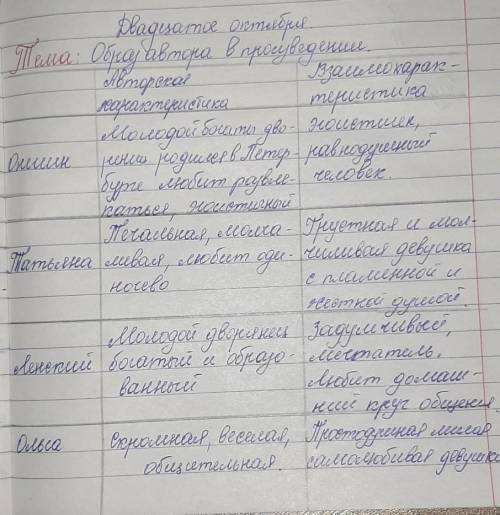 Двадцатое октября
Тема: Образ автора в произведении.
Авторская характеристика
Взаимохарак-
теристика
Онегин
Молодой богаты дво-
рянин родился в Петер-
бурге любит развле-
каться, эгоистичный
эгоистичен,
равнодушный
человек.
Татьяна
Печальная, молча-
ливая, любит оди-
ночево
Грустная и мол-
чиливая девушка
с пламенной и
нежной душой.
Ленский
Молодой дворянец
богатый и образо-
ванный
Задумчивый,
мечтатель,
любит домаш-
ний круг общения
Ольга
скромная, веселая,
общительная.
Простодушная милая
самолюбивая девушка